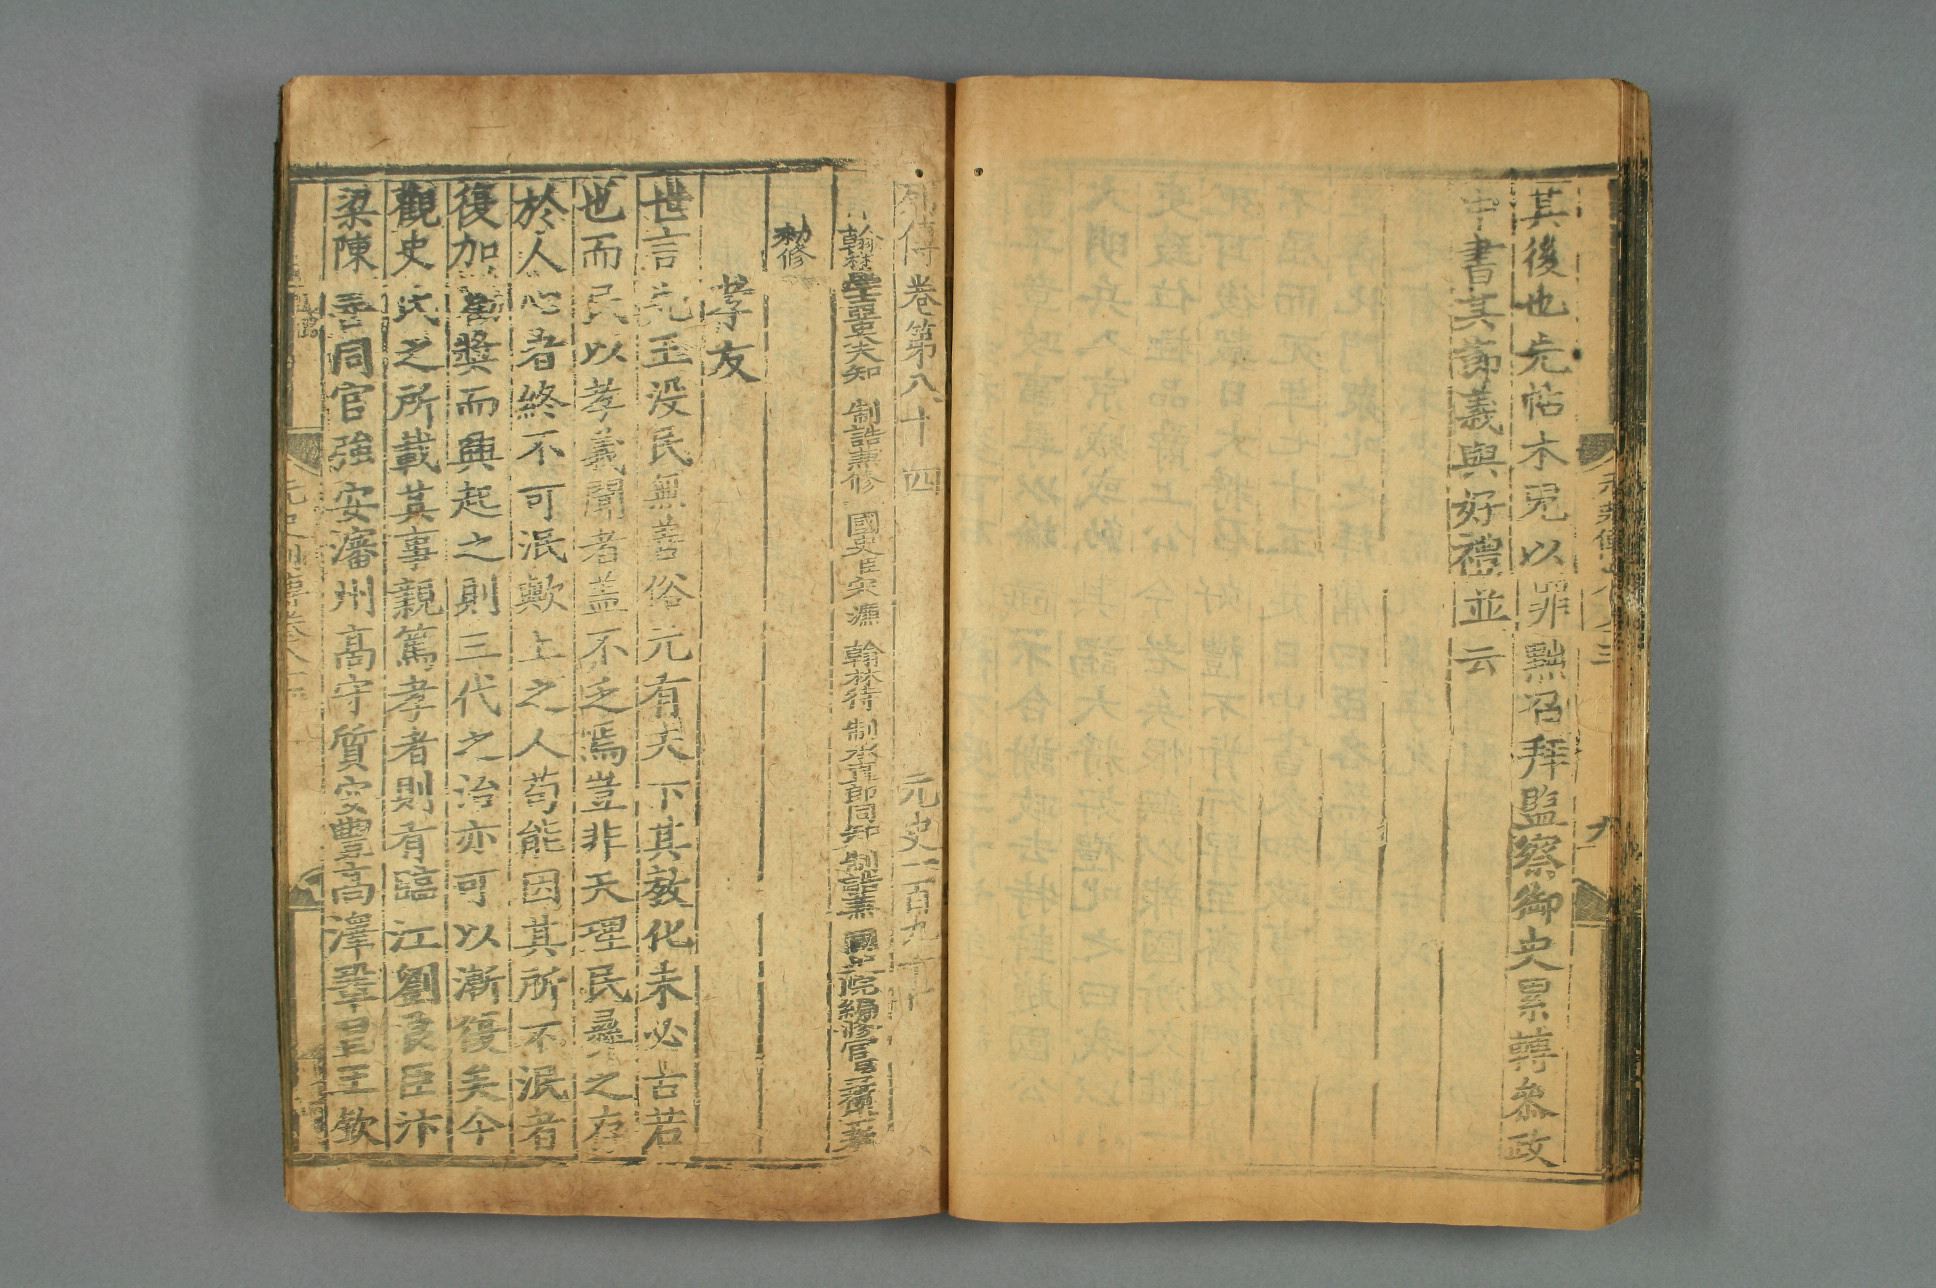 其後也先帖木兒以罪黜召拜監察御史累轉參政
中書其節義與好禮並云
列傳卷第八十四 元史一百九十七
翰林學士亞中大夫知 制誥兼修 國史臣宋 濂 翰林待 制承直郎同知 制誥兼 國史院編修官臣王禕等奉
勑修
孝友
世言先王沒民無善俗元有天下其敎化未必古若
也而民以孝義聞者盖不乏焉豈非天理民彛之存
於人心者終不可泯歟上之人苟能因其所不泯者
復加勸獎而興起之則三代之治亦可以漸復矣今
觀史氏之所載其事親篤孝者則有臨江劉良臣汴
梁陳善同官強安瀋州高守質安豐高澤鞏昌王欽